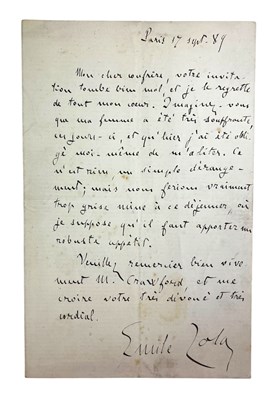 Paris 17 sept. 89
Mon cher confrère, votre invita-
tion tombe bien mal, et je le regrette
de tout mon cœur. Imaginez-vous
que ma femme a été très souffrante,
ces jours-ci, et qu'hier j'ai été obli-
gé moi-même de m'aliter. Ce
n'est rien, un simple dérange-
ment; mais nous ferions vraiment
trop grise mine à ce déjeuner, où
je suppose qu'il faut apporter un
robuste appétit.
Veuillez remercier bien vive-
ment M. Crawford, et me
croire votre très dévoué et très
cordial.
Emile Zola